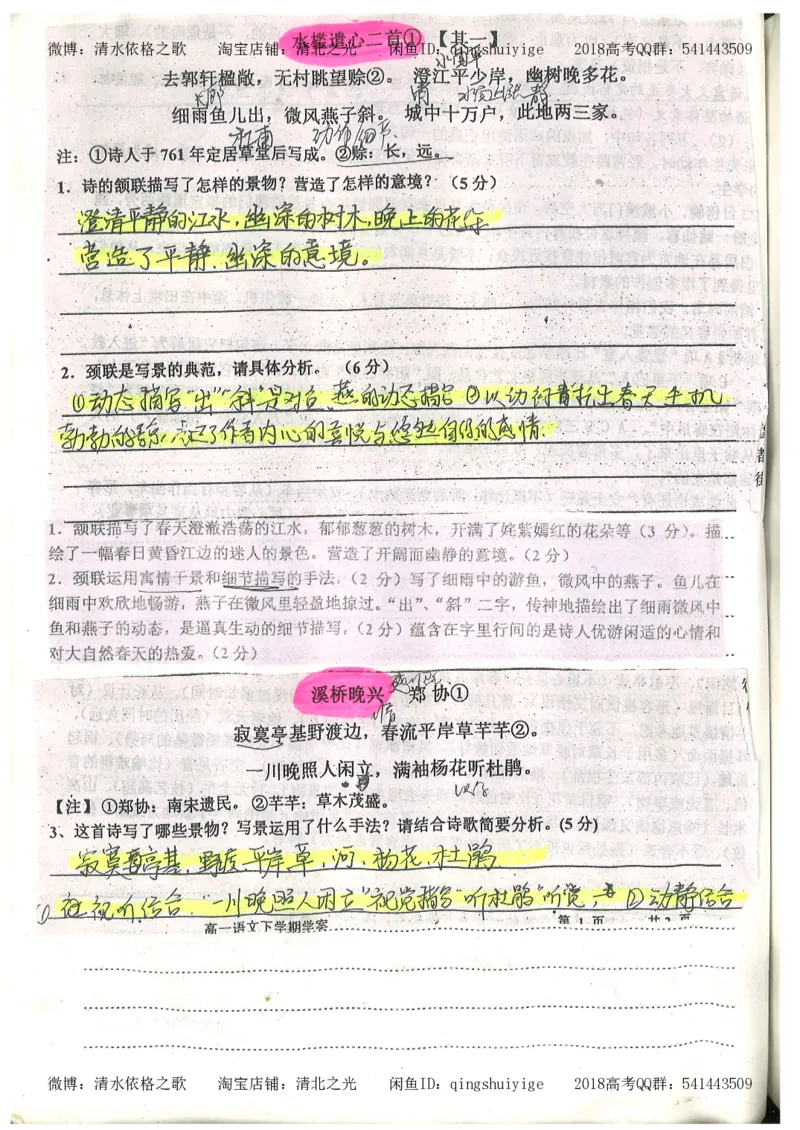 微博：清水依格之歌 淘宝店铺：清北之光 闲鱼ID：qingshuiyige 2018高考QQ群：541443509
水槛遣心二首① 【其一】
去郭轩楹敞，无村眺望赊②。 澄江平少岸，幽树晚多花。
细雨鱼儿出，微风燕子斜。 城中十万户，此地两三家。
注：①诗人于 761 年定居草堂后写成。②赊：长，远。
1. 诗的颔联描写了怎样的景物？营造了怎样的意境？（5 分）
澄清平静的江水，幽深的树木，晚上的花朵
营造了平静、幽深的意境。
2. 颈联是写景的典范，请具体分析。 （6 分）
①动态描写"出""斜"是对鱼、燕的动态描写 ②以动衬静 写出春天生机
勃勃的景
1. 颔联描写了春天澄澈浩荡的江水，郁郁葱葱的树木，开满了姹紫嫣红的花朵等（3 分）。描
绘了一幅春日黄昏江边的迷人的景色。营造了开阔而幽静的意境。（2 分）
2. 颈联运用寓情于景和细节描写的手法，（2 分）写了细雨中的游鱼，微风中的燕子。鱼儿在
细雨中欢欣地畅游，燕子在微风里轻盈地掠过。“出”、“斜”二字，传神地描绘出了细雨微风中
鱼和燕子的动态，是逼真生动的细节描写，（2 分）蕴含在字里行间的是诗人优游闲适的心情和
对大自然春天的热爱。（2 分）
溪桥晚兴 郑 协①
寂寞亭基野渡边，春流平岸草芊芊②。
一川晚照人闲立，满袖杨花听杜鹃。
【注】 ①郑协：南宋遗民。 ②芊芊：草木茂盛。
3、这首诗写了哪些景物？写景运用了什么手法？请结合诗歌简要分析。(5 分)
寂寞亭基，野渡，平岸草，河，杨花，杜鹃
视听结合."一川晚照人闲立"视觉描写"听杜鹃"听觉， ②动静结合
高一语文下学期学案 第 1 页 共 2 页
微博：清水依格之歌 淘宝店铺：清北之光 闲鱼ID：qingshuiyige 2018高考QQ群：541443509